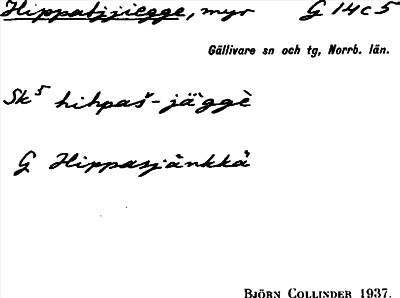 Hippatjjiegge, myr G 14 c 5
Gällivare sn och tg, Norrb. län.
Sk⁵ hihpaš-jäggè
G Hippasjänkkä
BJÖRN COLLINDER 1937.